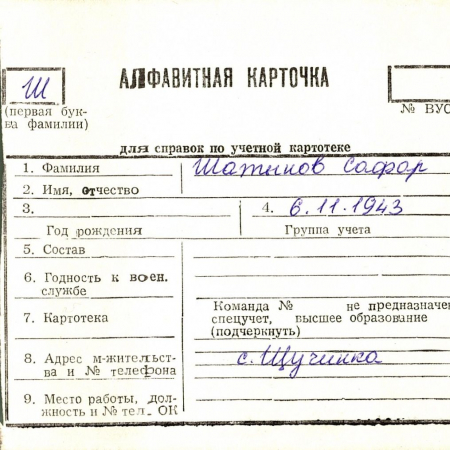 Ш
АЛФАВИТНАЯ КАРТОЧКА
(первая бук-
ва фамилии)
№ ВУС
для справок по учетной картотеке
1. Фамилия Шатинов Сафор
2. Имя, отчество
3. 4. 6.11.1943
Год рождения Группа учета
5. Состав
6. Годность к воен.
службе
7. Картотека
Команда № не предназначе
спецучет, высшее образование
(подчеркнуть)
8. Адрес м-жительст-
ва и № телефона
с. Щучинка
9. Место работы, дол-
жность и № тел. ОК